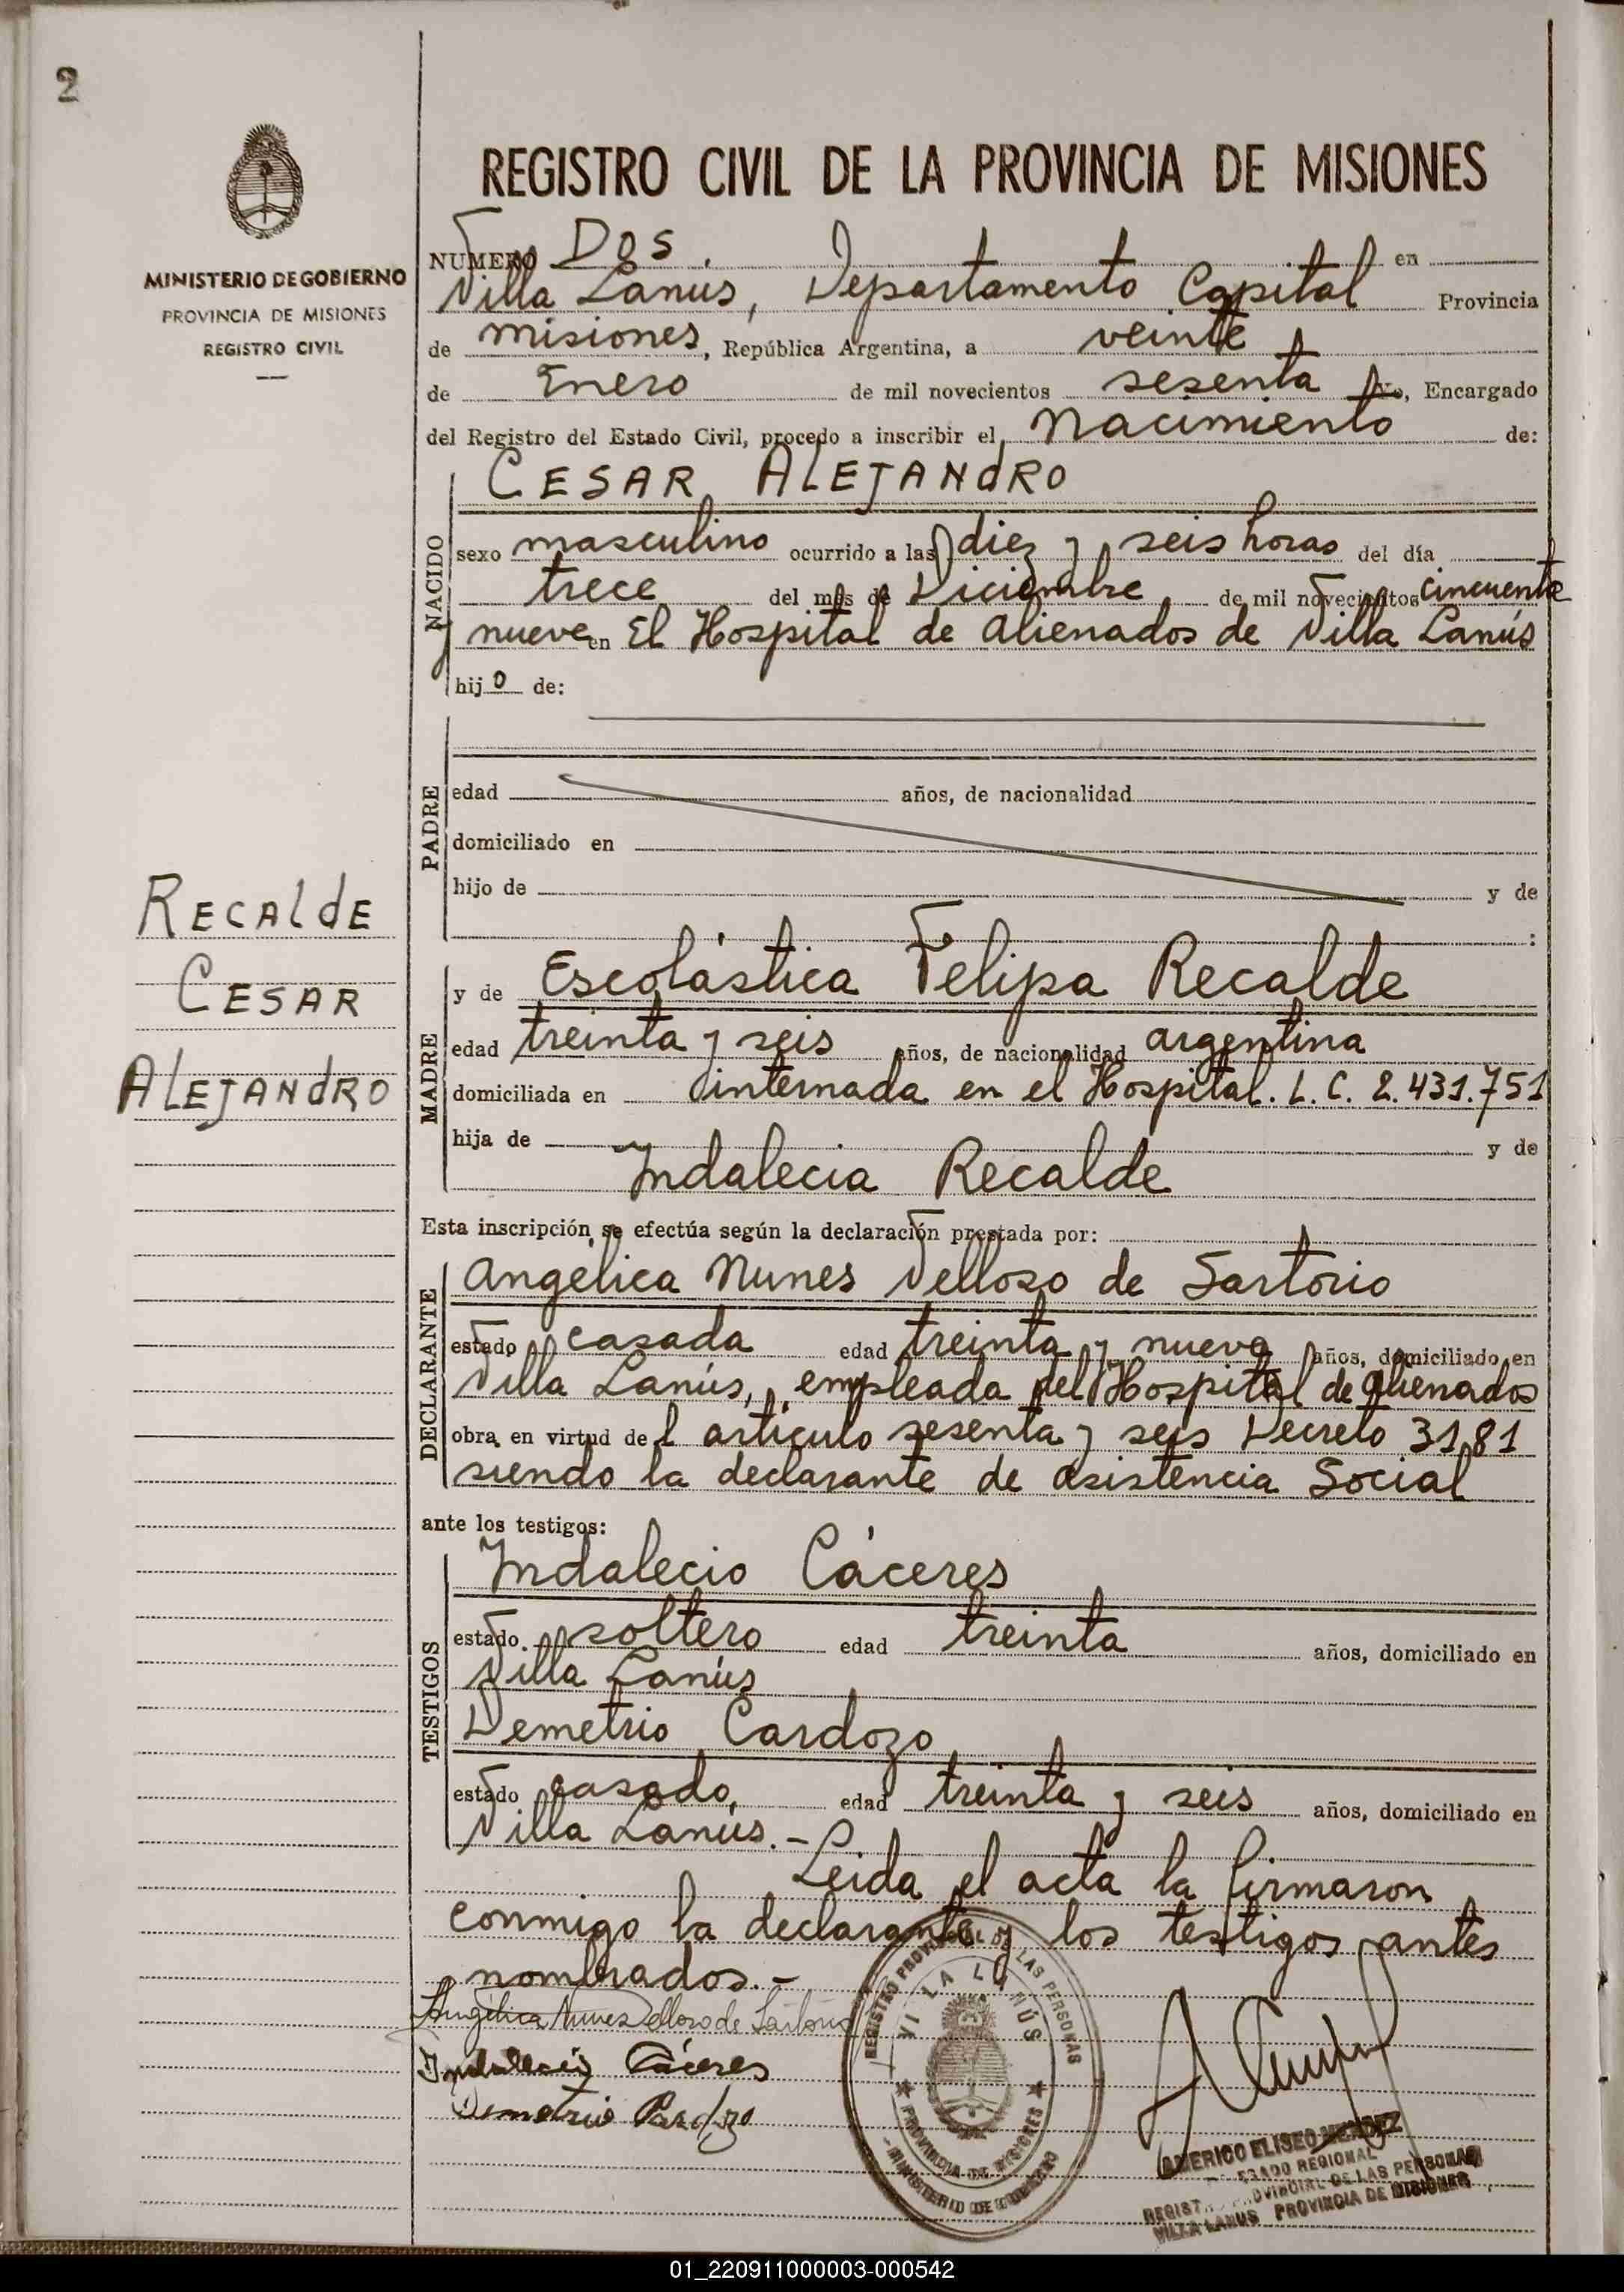 2
MINISTERIO DE GOBIERNO
PROVINCIA DE MISIONES
REGISTRO CIVIL
RECALDE
CESAR
ALEJANDRO
REGISTRO CIVIL DE LA PROVINCIA DE MISIONES
NUMERO Dos. en
Villa Lanús, Departamento Capital Provincia
de Misiones, República Argentina, a veinte
de Enero de mil novecientos sesenta Yo, Encargado
del Registro del Estado Civil, procedo a inscribir el Nacimiento de:
CESAR ALEJANDRO
NACIDO
sexo masculino ocurrido a las diez y seis horas del día
trece del mes de Diciembre de mil novecientos cincuenta
y nueve en El Hospital de Alienados de Villa Lanús
hijo de:
PADRE
edad años, de nacionalidad
domiciliado en
hijo de y de
:
MADRE
y de Escolástica Felipa Recalde
edad treinta y seis años, de nacionalidad argentina
domiciliada en internada en el Hospital. L. C. 2.431.751
hija de y de
Indalecia Recalde
Esta inscripción se efectúa según la declaración prestada por:
DECLARANTE
Angélica Nunes Velloso de Sartorio
estado casada edad treinta y nueve años, domiciliado en
Villa Lanús, empleada del Hospital de Alienados
obra en virtud del artículo sesenta y seis Decreto 3181
siendo la declarante de Asistencia Social
ante los testigos:
TESTIGOS
Indalecio Cáceres
estado soltero edad treinta años, domiciliado en
Villa Lanús
Demetrio Cardozo
estado casado, edad treinta y seis años, domiciliado en
Villa Lanús.-
Leida el acta la firmaron
conmigo la declarante y los testigos antes
nombrados.-
Angélica Nunes Velloso de Sartorio
Indalecio Cáceres
Demetrio Cardozo
REGISTRO PROVINCIAL DE LAS PERSONAS
VILLA LANÚS
PROVINCIA DE MISIONES
MINISTERIO DE GOBIERNO
AMERICO ELISEO MENDEZ
REGIONAL
PROVINCIAL DE LAS PERSONAS
VILLA LANUS PROVINCIA DE MISIONES
01_220911000003-000542